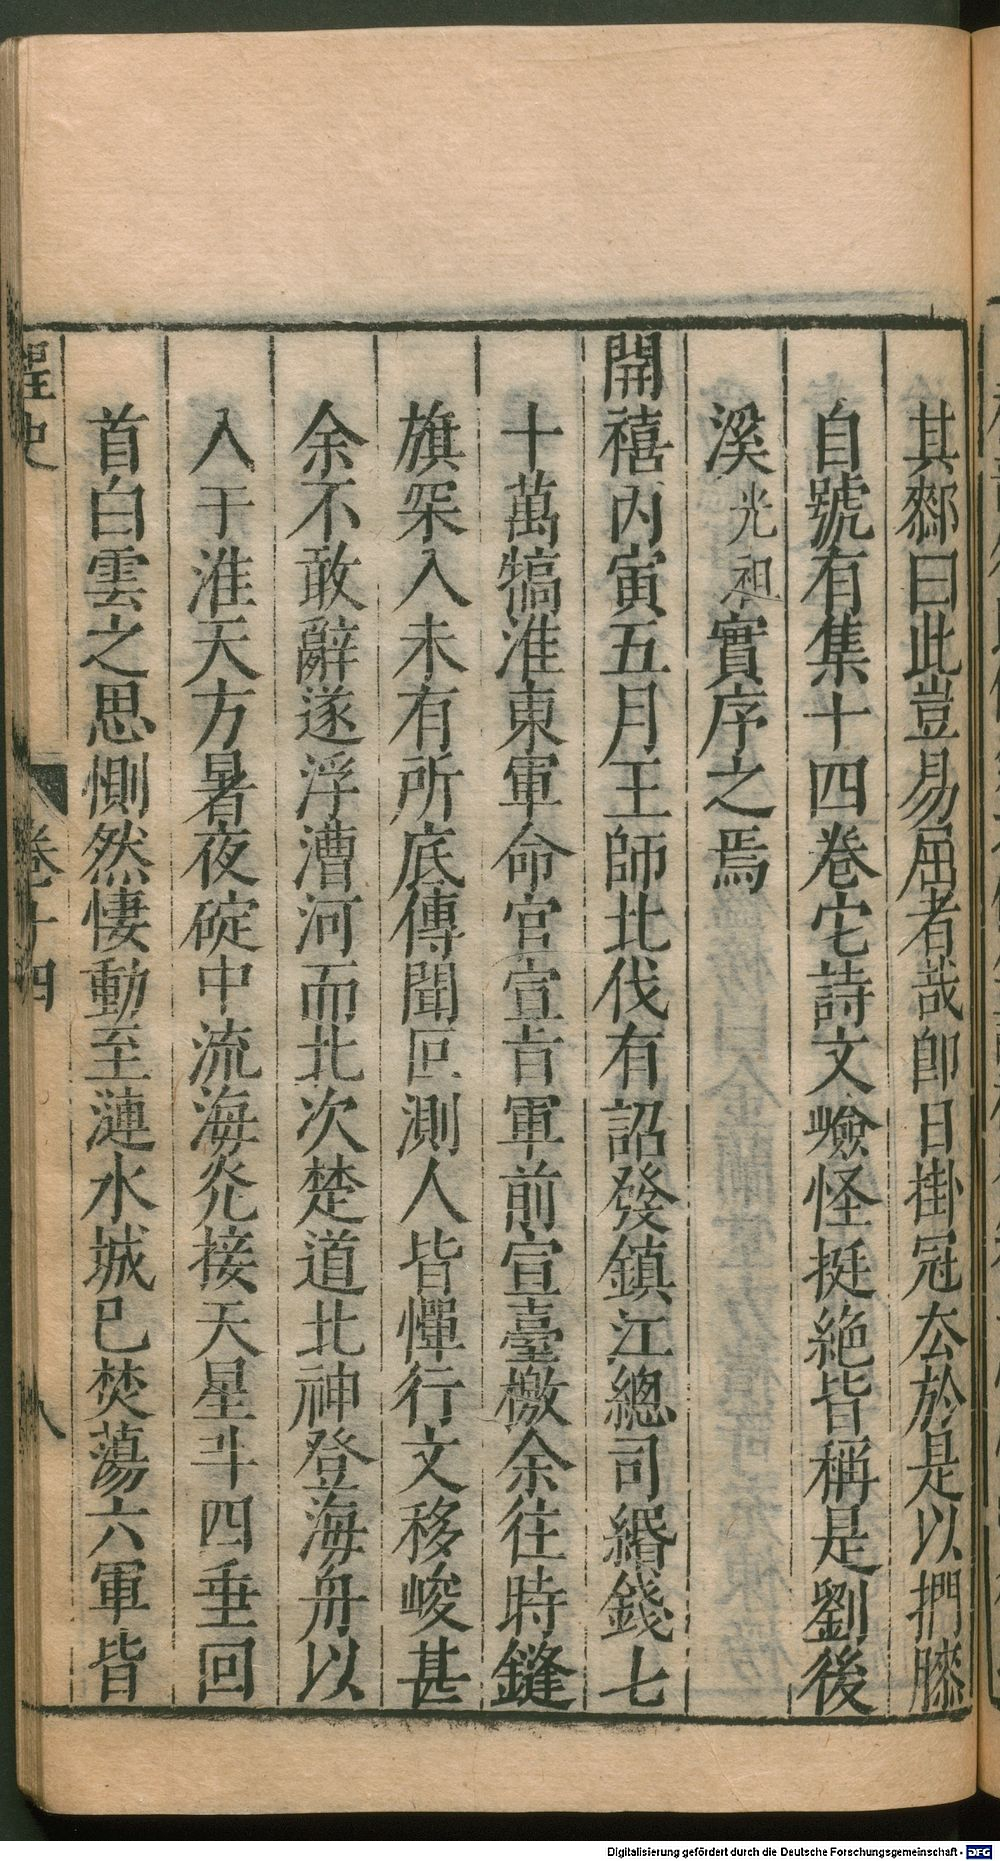 其鄰曰此豈易屈者哉即日掛冠去於是以捫膝
自號有集十四卷它詩文嶮怪挺絶皆稱是劉後
溪光祖實序之焉
開禧丙寅五月王師北伐有詔發鎮江總司緡錢七
十萬犒淮東軍命官宣旨軍前宣臺檄余往時鏠
旗罙入未有所底傳聞叵測人皆憚行文移峻甚
余不敢辭遂浮漕河而北次楚道北神登海舟以
入于淮天方暑夜碇中流海光接天星斗四垂回
首白雲之思惻然悽動至漣水城已焚蕩六軍皆
桯史
卷十四
八
Digitalisierung gefördert durch die Deutsche Forschungsgemeinschaft - DFG